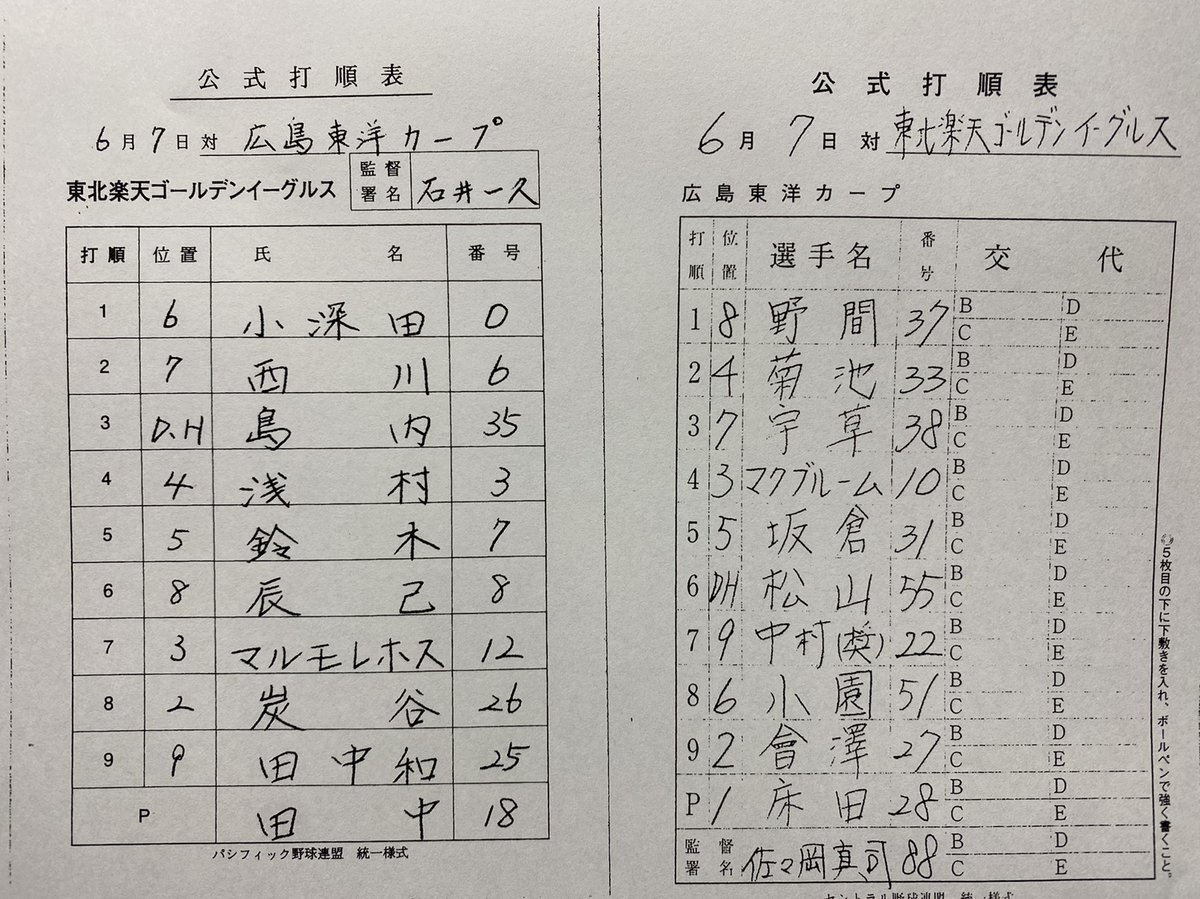 公式打順表
6月7日対 広島東洋カープ
東北楽天ゴールデンイーグルス 監督署名 石井一久
打順 位置 氏名 番号
1 6 小深田 0
2 7 西川 6
3 D.H 島内 35
4 4 浅村 3
5 5 鈴木 7
6 8 辰己 8
7 3 マルモレホス 12
8 2 炭谷 26
9 9 田中和 25
P 田中 18
パシフィック野球連盟 統一様式
公式打順表
6月7日対 東北楽天ゴールデンイーグルス
広島東洋カープ
打順 位置 選手名 番号 交代
1 8 野間 37 B D
C E
2 4 菊池 33 B D
C E
3 7 宇草 38 B D
C E
4 3 マクブルーム 10 B D
C E
5 5 坂倉 31 B D
C E
6 DH 松山 55 B D
C E
7 9 中村(奨) 22 B D
C E
8 6 小園 51 B D
C E
9 2 會澤 27 B D
C E
P 1 床田 28 B D
C E
監督署名 佐々岡真司 88 B D
C E
セントラル野球連盟 統一様式
◎5枚目の下に下敷きを入れ、ボールペンで強く書くこと。